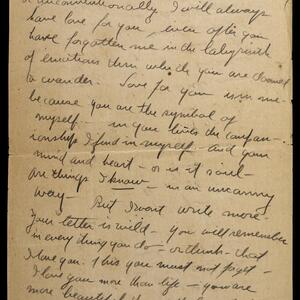 unconventionally I will always
have love for you, even after you
have forgotten me in the labyrinth
of emotions thru which you are doomed
to wander. Love for you is in me
because you are the symbol of
myself — in your lives the compan-
ionships I find in myself — and your
mind and heart — or is it soul —
are things I know in an uncanny
way — But I won't write more —
Your letter is wild — you will remember
in everything you do — or think — that
I love you. This you must not forget —
I love you more than life — you are
more beautiful